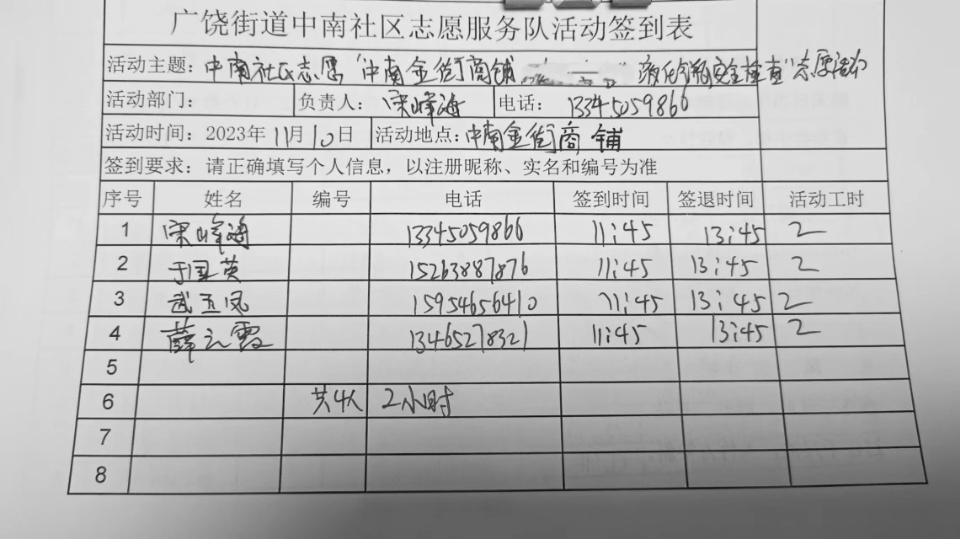 广饶街道中南社区志愿服务队活动签到表
活动主题：中南社区志愿"中南金街商铺 液化气安全检查"志愿活动
活动部门： 负责人：宋峰海 电话：13345059866
活动时间：2023年11月10日 活动地点：中南金街商铺
签到要求：请正确填写个人信息，以注册昵称、实名和编号为准
序号 姓名 编号 电话 签到时间 签退时间 活动工时
1 宋峰海 13345059866 11:45 13:45 2
2 于国英 15263887876 11:45 13:45 2
3 武玉凤 15954656410 11:45 13:45 2
4 薛云霞 13465278321 11:45 13:45 2
5
6 共4人 2小时
7
8